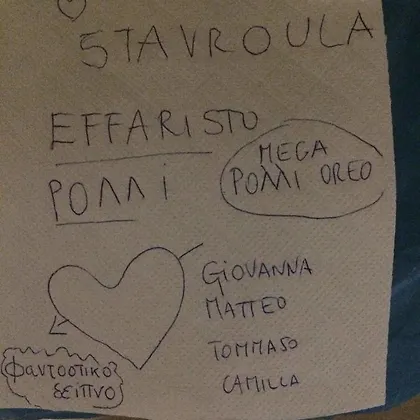 STAVROULA
EFFARISTO
ΡΟΛΛΙ
MEGA
ΡΟΛΛΙ OREO
GIOVANNA
MATTEO
TOMMASO
CAMILLA
φανтοστικο
δειπνο